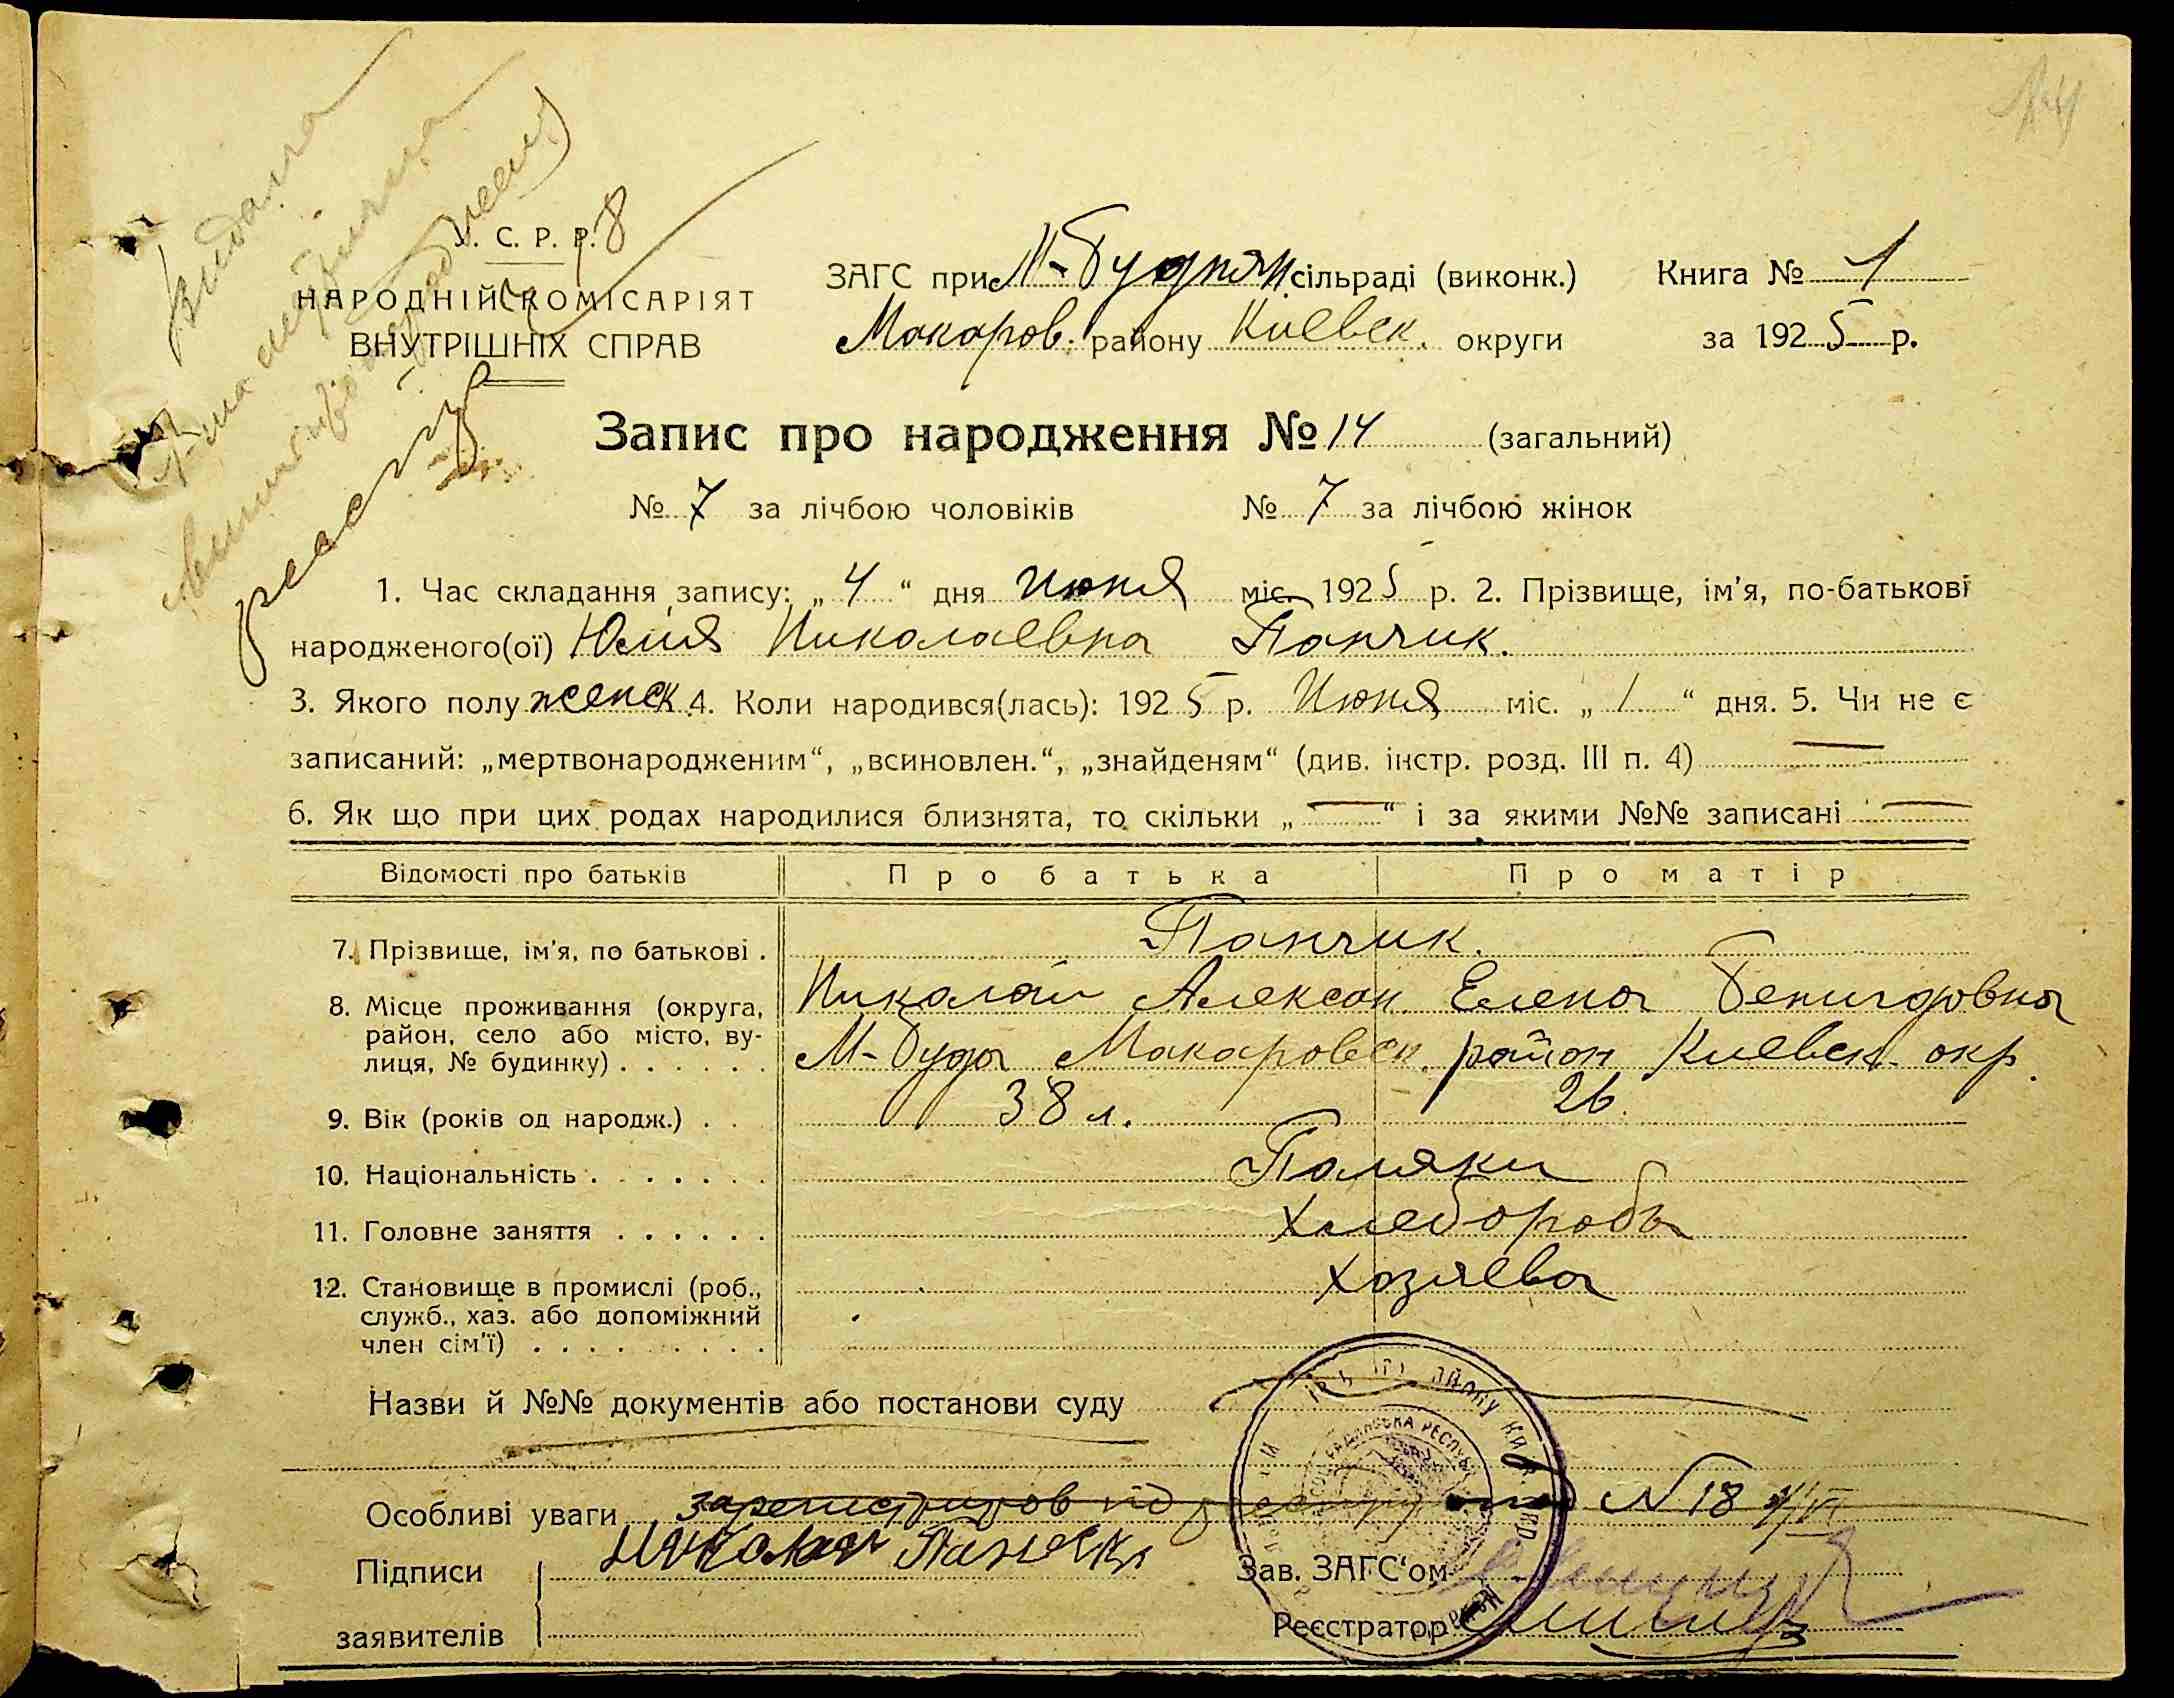 Видана
У. С. Р. Р.
НАРОДНІЙ КОМІСАРІЯТ
ВНУТРІШНІХ СПРАВ
ЗАГС при М-Буднян сільраді (виконк.) Книга № 1
Макаров. району Киевск. округи за 1925 р.
Запис про народження № 14 (загальний)
№ 7 за лічбою чоловіків № 7 за лічбою жінок
1. Час складання запису: „4“ дня Июня міс. 1925 р. 2. Прізвище, ім'я, по-батькові
народженого(ої) Юлия Николаевна Панчик.
3. Якого полу женск. 4. Коли народився(лась): 1925 р. Июня міс. „1“ дня. 5. Чи не є
записаний: „мертвонародженим“, „всиновлен.“, „знайденям“ (див. інстр. розд. III п. 4) —
6. Як що при цих родах народилися близнята, то скільки „—“ і за якими №№ записані —
Відомості про батьків Про батька Про матір
7. Прізвище, ім'я, по батькові . Панчик.
Николай Алексан. Елена
8. Місце проживання (округа,
район, село або місто, ву-
лиця, № будинку) . . . . . . М-Буда Макаровск. район Киевск. окр.
9. Вік (років од народж.) . . 38 л. 26.
10. Національність . . . . . . . Поляки
11. Головне заняття . . . . . . Хлеборобы
12. Становище в промислі (роб.,
служб., хаз. або допоміжний
член сім'ї) . . . . . . . . . Хозяева
Назви й №№ документів або постанови суду
Особливі уваги зарегистриров під N 18
Підписи Николай
заявителів
Зав. ЗАГС'ом
Реєстратор